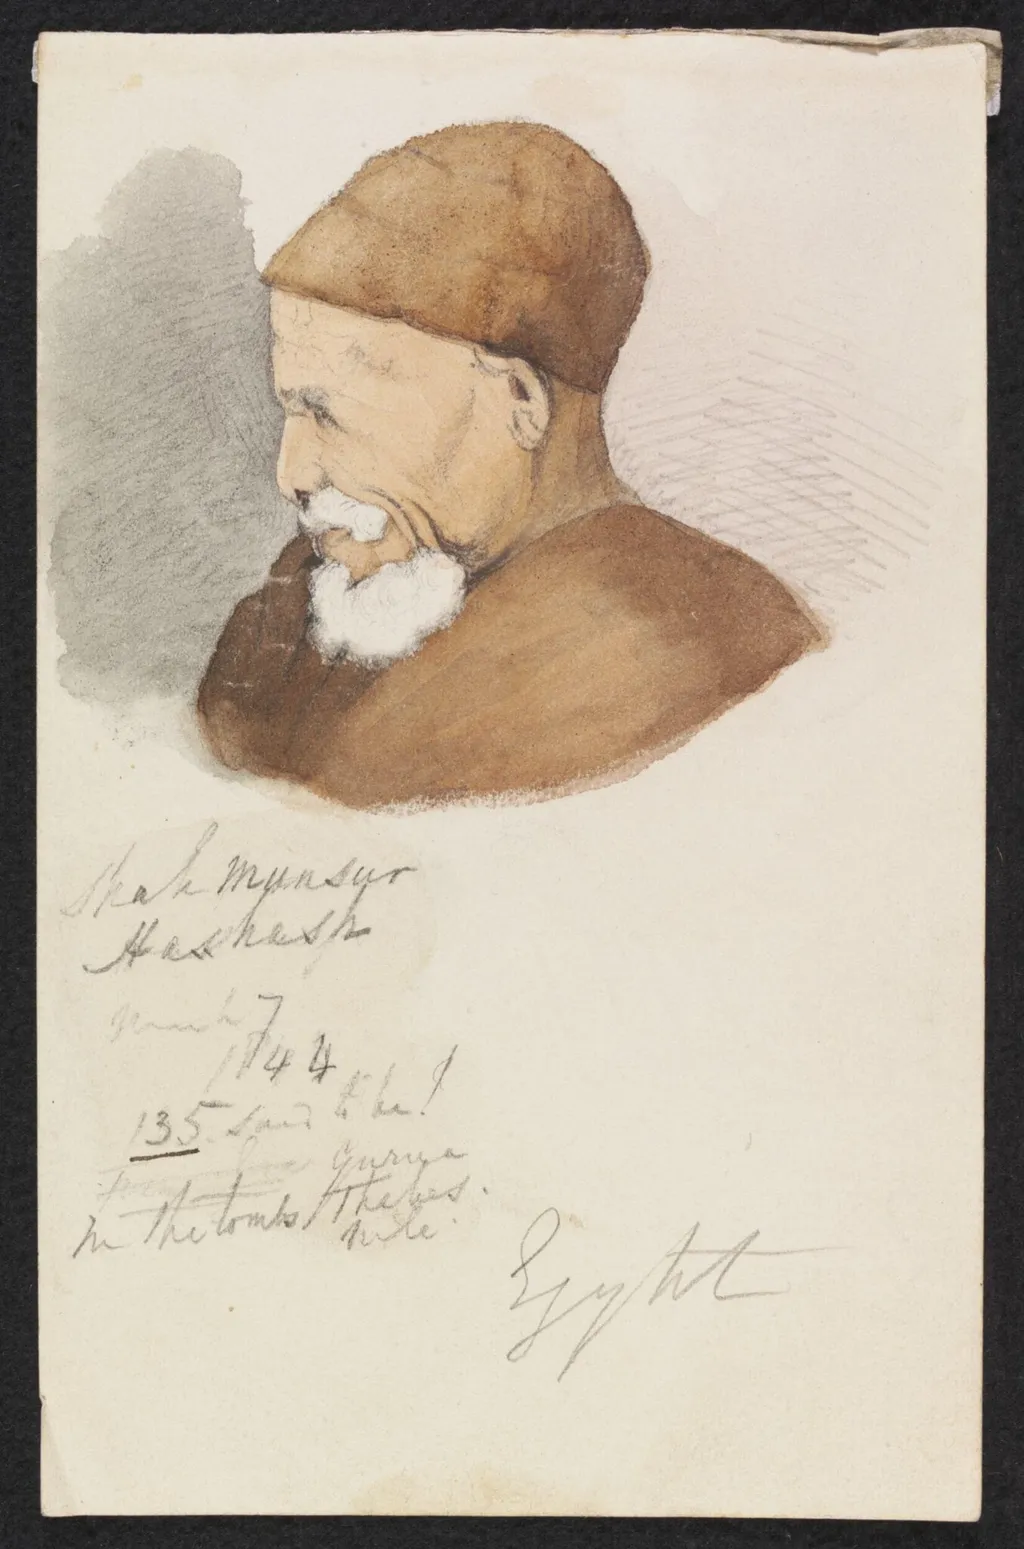 Shah Munsur
Hashash
March 7
1844
135 said to be!
Gurna
In the tombs / Thebes.
Nile.
Egypt